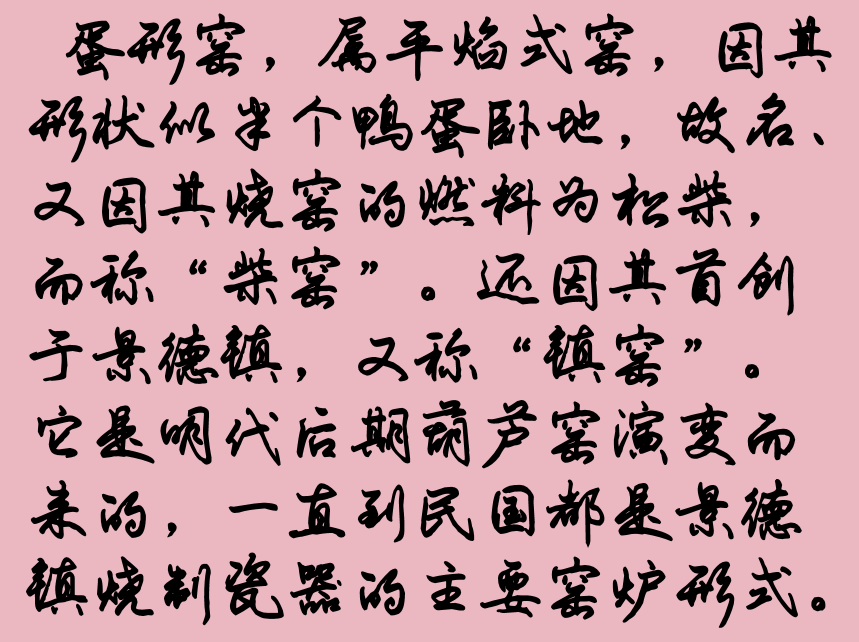 蛋形窑，属平焰式窑，因其
形状似半个鸭蛋卧地，故名、
又因其烧窑的燃料为松柴，
而称“柴窑”。还因其首创
于景德镇，又称“镇窑”。
它是明代后期葫芦窑演变而
来的，一直到民国都是景德
镇烧制瓷器的主要窑炉形式。